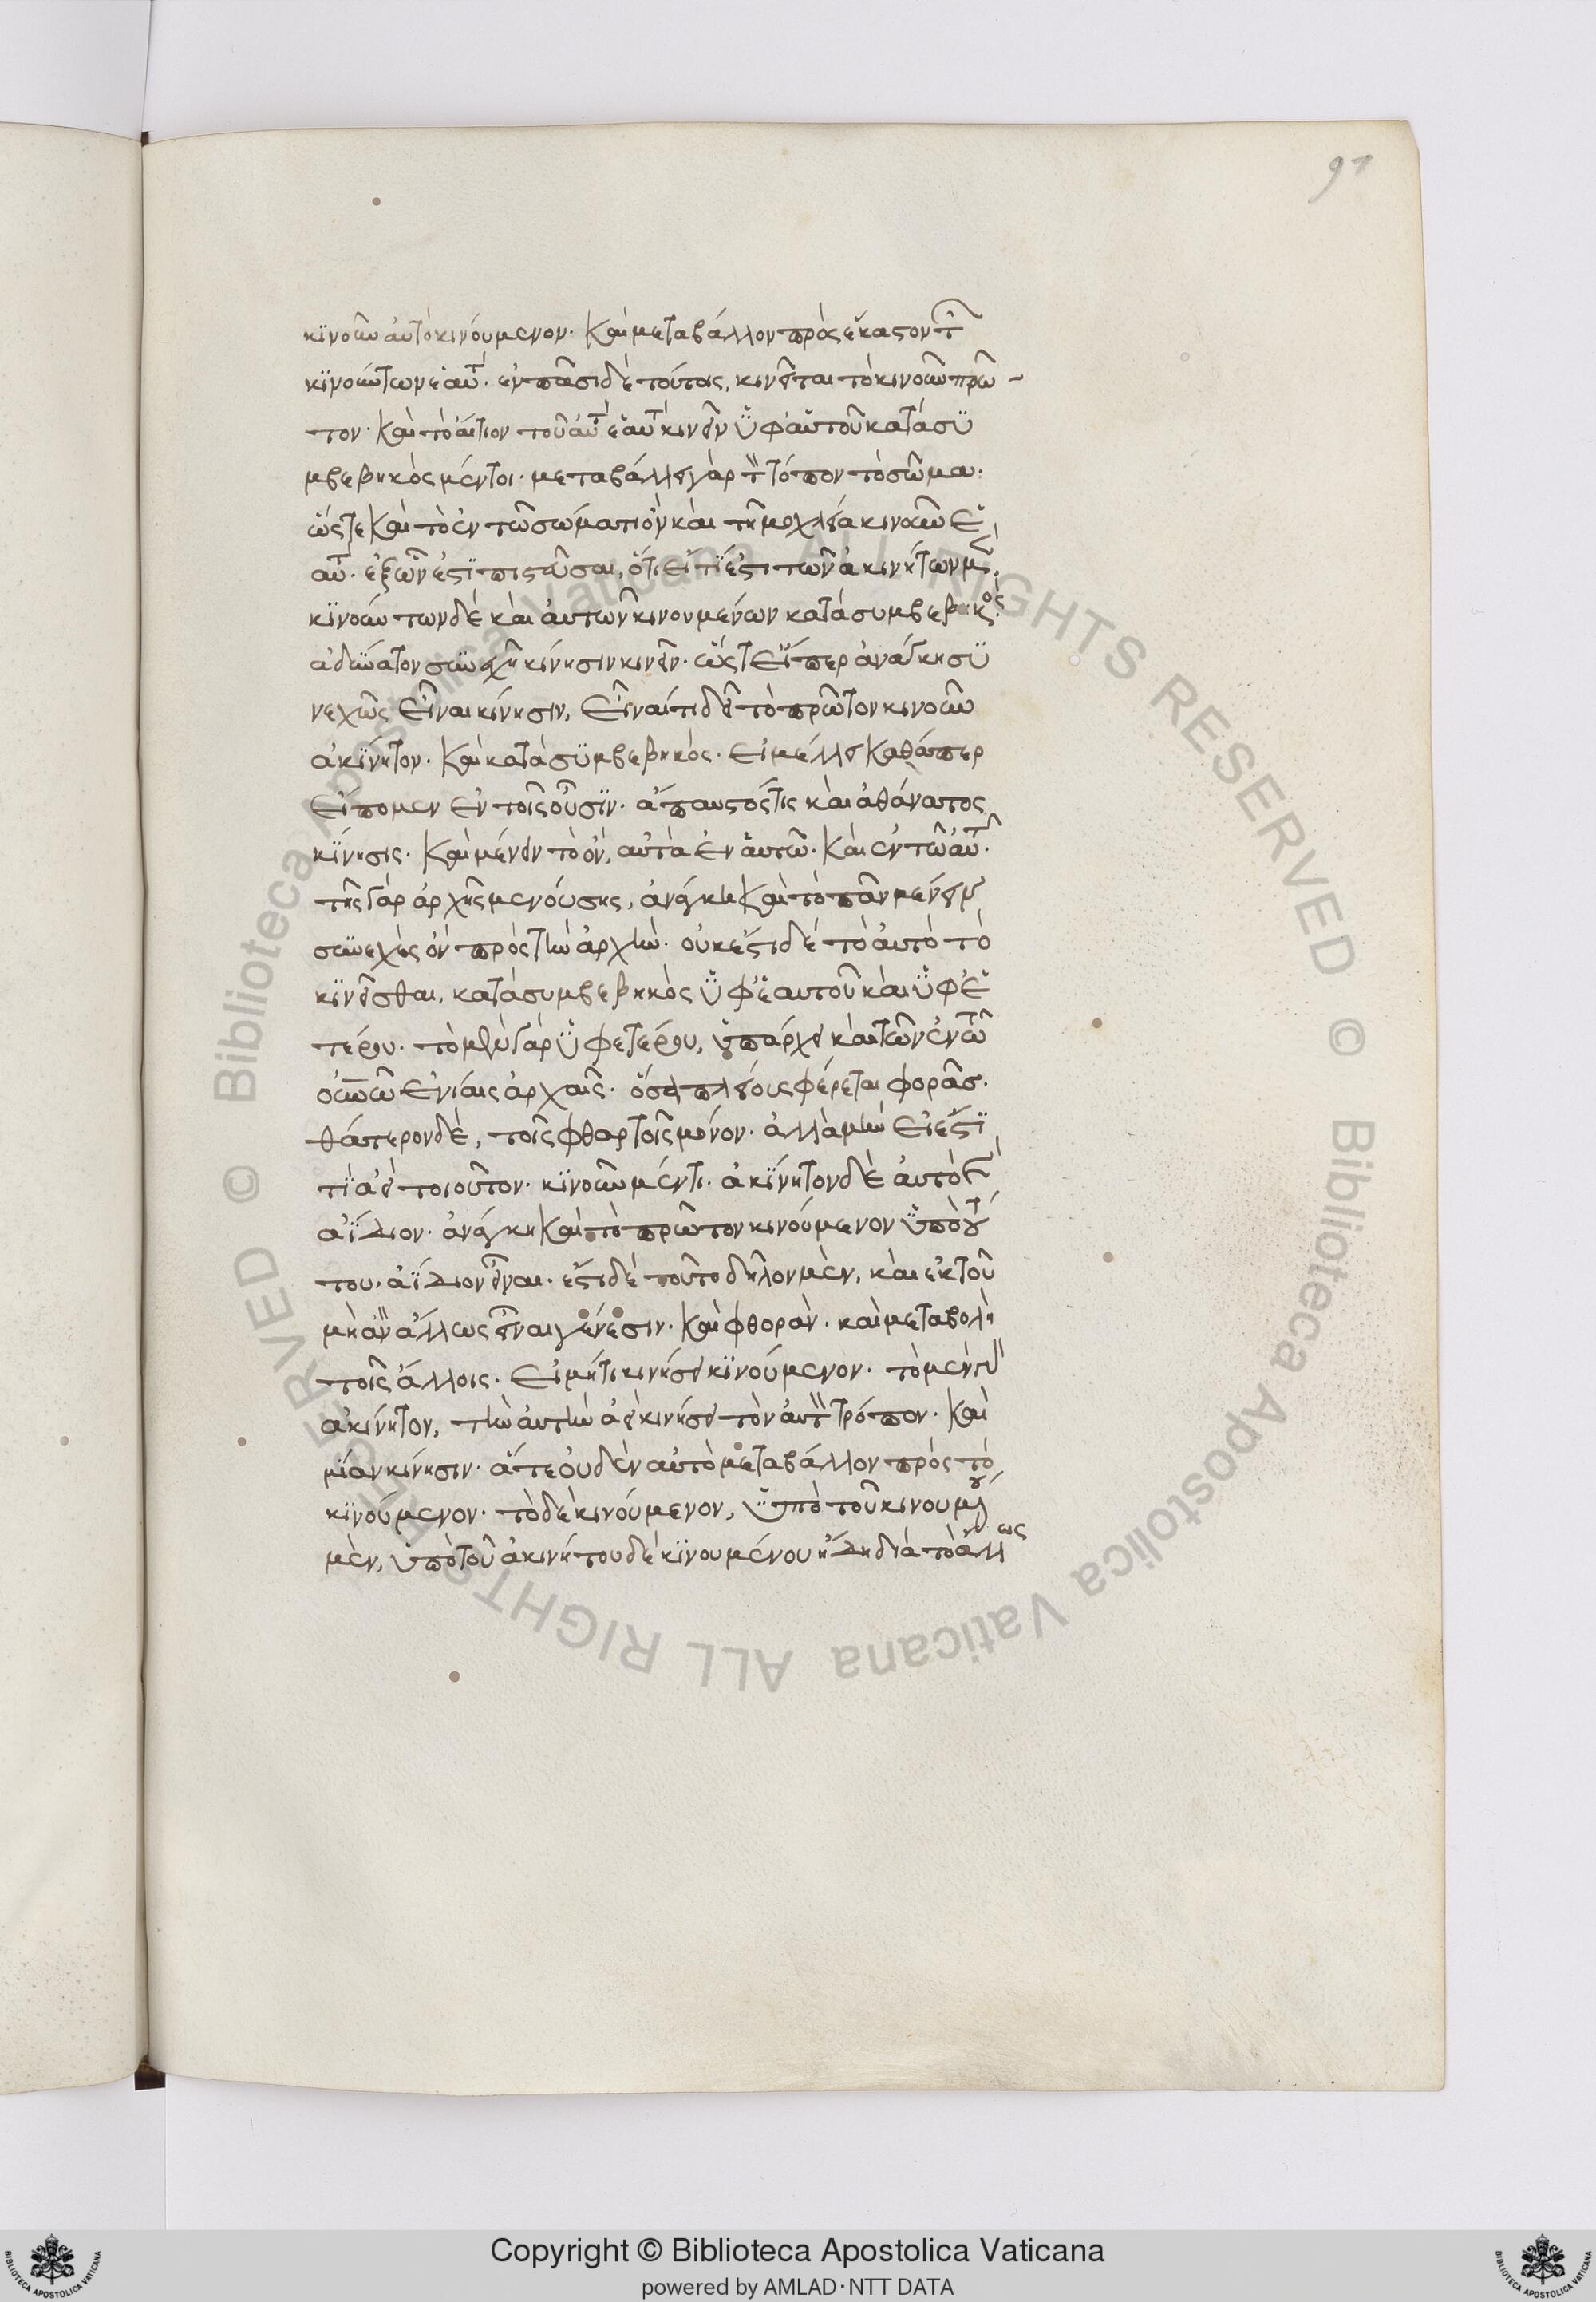 91
κινοῦν αὐτὸ κινούμενον. καὶ μεταβάλλον πρὸς ἕκαστον τῶν
κινούντων ἑαυτά. ἐν πᾶσι δὲ τούτοις, κινεῖται τὸ κινοῦν πρῶ
τον. καὶ τὸ αἴτιον τοῦ αὐτὸ ἑαυτὸ κινεῖν ὑφ' αὑτοῦ κατὰ συ
μβεβηκὸς μέντοι. μεταβάλλει γὰρ τὸν τόπον τὸ σῶμα.
ὥστε καὶ τὸ ἐν τῷ σώματι ὂν καὶ τῇ μοχλείᾳ κινοῦν ἑ
αυτό. ἐξ ὧν ἔστι πιστεῦσαι, ὅτι εἴ τι ἔστι τῶν ἀκινήτων μὲν,
κινούντων δὲ καὶ αὐτῶν κινουμένων κατὰ συμβεβηκός.
ἀδύνατον συνεχῆ κίνησιν κινεῖν. ὥστ' εἴπερ ἀνάγκη συ
νεχῶς εἶναι κίνησιν, εἶναί τι δεῖ τὸ πρῶτον κινοῦν
ἀκίνητον. καὶ κατὰ συμβεβηκός. εἰ μέλλει καθάπερ
εἴπομεν ἐν τοῖς οὖσιν. ἄπαυστός τις καὶ ἀθάνατος
κίνησις. καὶ μένειν τὸ ὄν, αὐτὰ ἐν αὑτῷ. καὶ ἐν τῷ αὐτῷ.
τῆς γὰρ ἀρχῆς μενούσης, ἀνάγκη καὶ τὸ πᾶν μένειν
συνεχὲς ὂν πρὸς τὴν ἀρχήν. οὐκ ἔστι δὲ τὸ αὐτὸ τὸ
κινεῖσθαι, κατὰ συμβεβηκὸς ὑφ' ἑαυτοῦ καὶ ὑφ' ἑ
τέρου. τὸ μὲν γὰρ ὑφ' ἑτέρου, ὑπάρχει καὶ τῶν ἐν τῷ
οὐρανῷ ἐνίαις ἀρχαῖς. ὅσα πλείους φέρεται φοράς.
θάτερον δὲ, τοῖς φθαρτοῖς μόνον. ἀλλὰ μὴν εἰ ἔστι
τι ἀεὶ τοιοῦτον. κινοῦν μέν τι. ἀκίνητον δὲ αὐτὸ καὶ
ἀΐδιον. ἀνάγκη καὶ τὸ πρῶτον κινούμενον ὑπὸ τού
του, ἀΐδιον εἶναι. ἔστι δὲ τοῦτο δῆλον μὲν, καὶ ἐκ τοῦ
μὴ ἂν ἄλλως εἶναι γένεσιν. καὶ φθορὰν. καὶ μεταβολὴν
τοῖς ἄλλοις. εἰ μή τι κινήσει κινούμενον. τὸ μὲν γὰρ
ἀκίνητον, τὴν αὐτὴν ἀεὶ κινήσει τὸν αὐτὸν τρόπον. καὶ
μίαν κίνησιν. ἅτε οὐδὲν αὐτὸ μεταβάλλον πρὸς τὸ
κινούμενον. τὸ δὲ κινούμενον, ὑπὸ τοῦ κινουμένου
μὲν, ὑπὸ τοῦ ἀκινήτου δὲ κινουμένου ἤδη διὰ τὸ ἄλλως
Copyright © Biblioteca Apostolica Vaticana
powered by AMLAD·NTT DATA
© Biblioteca Apostolica Vaticana ALL RIGHTS RESERVED © Biblioteca Apostolica Vaticana ALL RIGHTS RESERVED